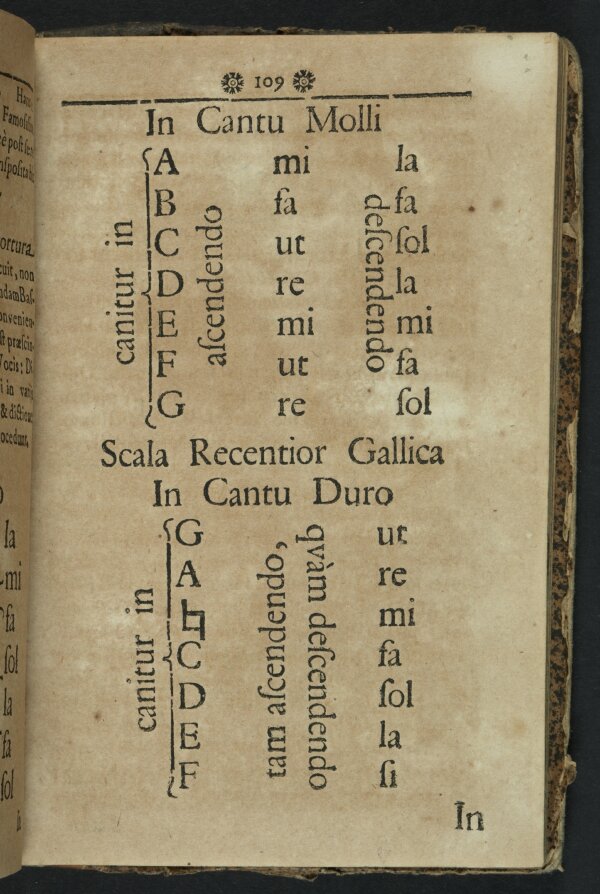 109
In Cantu Molli
canitur in
aſcendendo
deſcendendo
A mi la
B fa fa
C ut ſol
D re la
E mi mi
F ut fa
G re ſol
Scala Recentior Gallica
In Cantu Duro
canitur in
tam aſcendendo,
qvàm deſcendendo
G ut
A re
♮ mi
C fa
D ſol
E la
F ſi
In
la
mi
fa
ſol
la
fa
ſol